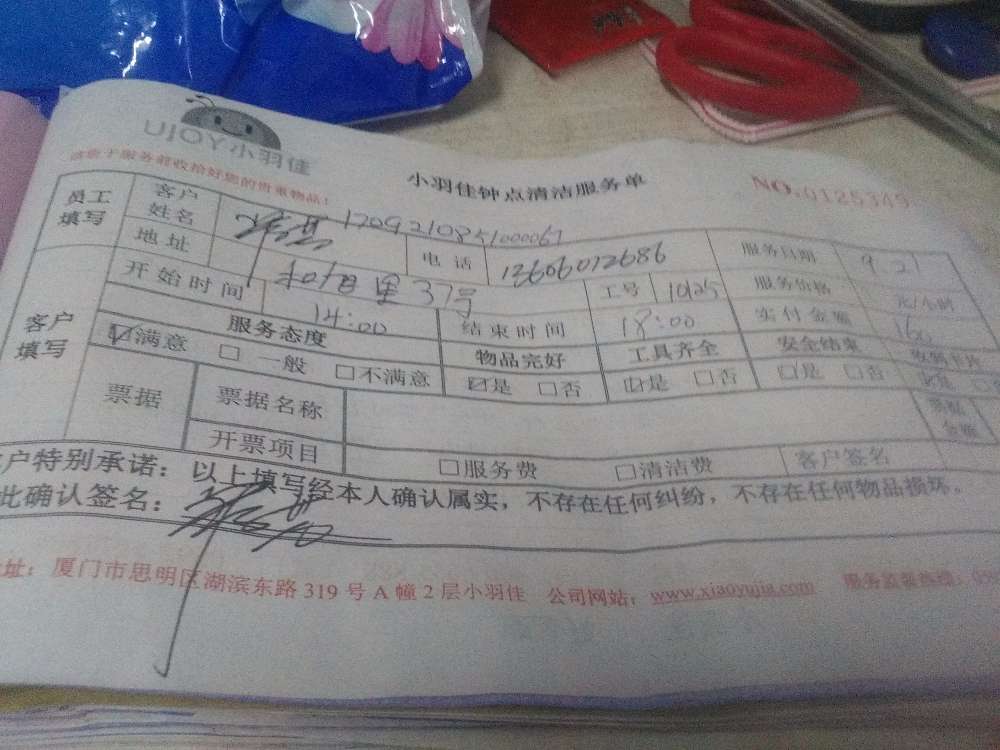 UJOY小羽佳
请您于服务前收拾好您的贵重物品!
小羽佳钟点清洁服务单
NO.0125349
员工填写 客户姓名 1709210851000067 电话 13606012686 服务日期 9 21
地址 37号 工号 1025 服务价格 元/小时
客户填写 开始时间 14:00 结束时间 18:00 实付金额 160
服务态度 物品完好 工具齐全 安全结束
☑满意 □一般 □不满意 ☑是 □否 ☑是 □否 □是 □否 ☑是
票据 票据名称 票据金额
开票项目 □服务费 □清洁费 客户签名
客户特别承诺:以上填写经本人确认属实,不存在任何纠纷,不存在任何物品损坏。
此确认签名:
址:厦门市思明区湖滨东路319号A幢2层小羽佳 公司网站:www.xiaoyujia.com 服务监督热线: